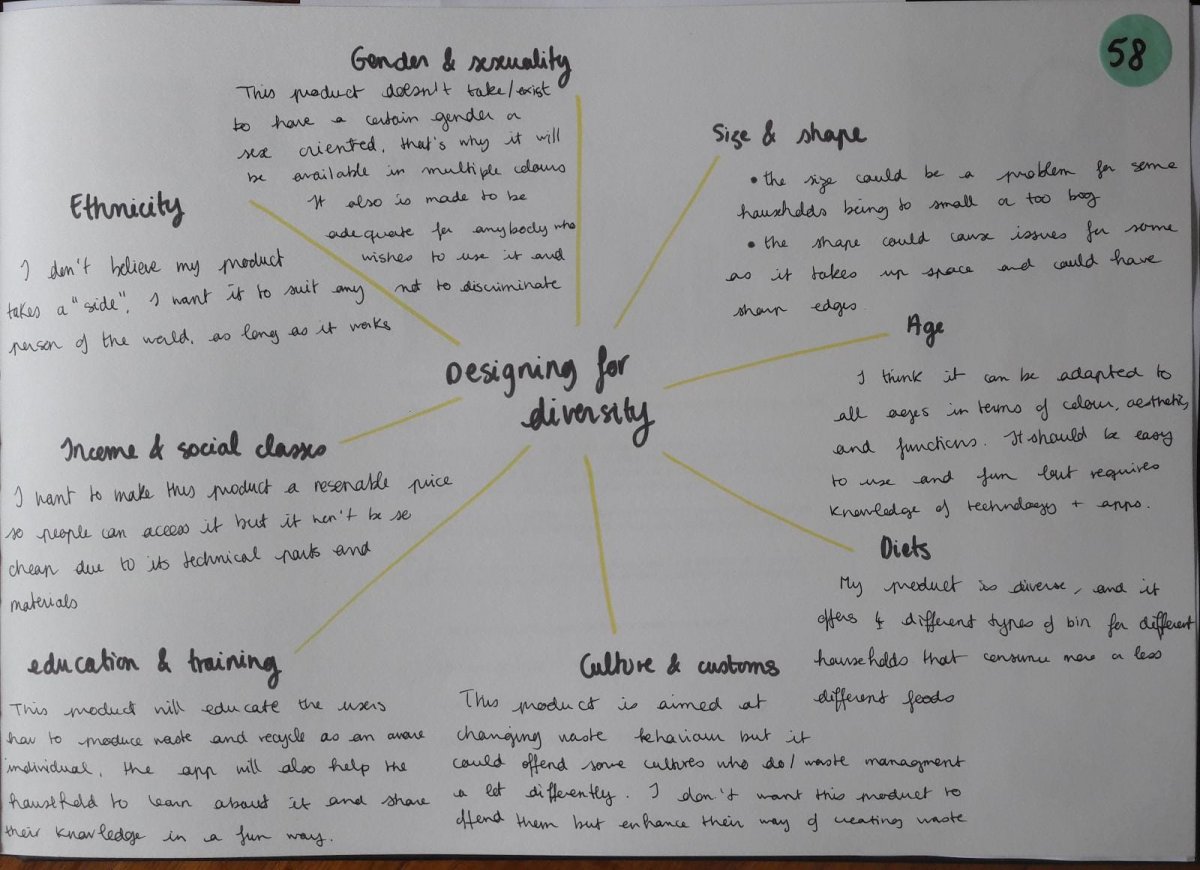 58
Gender & sexuality
This product doesn't take/exist
to have a certain gender or
sex oriented, that's why it will
be available in multiple colours
It also is made to be
adequate for anybody who
wishes to use it and
not to discriminate
Size & shape
• the size could be a problem for some
households being to small or too big
• the shape could cause issues for some
as it takes up space and could have
sharp edges.
Ethnicity
I don't believe my product
takes a "side". I want it to suit any
person of the world, as long as it works
Designing for
diversity
Age
I think it can be adapted to
all ages in terms of colour, aesthetics,
and functions. It should be easy
to use and fun but requires
knowledge of technology + apps.
Income & social classes
I want to make this product a resenable price
so people can access it but it won't be so
cheap due to its technical parts and
materials
Diets
My product is diverse, and it
offers 4 different types of bin for different
households that consume more or less
different foods
education & training
This product will educate the users
how to produce waste and recycle as an aware
individual. the app will also help the
household to learn about it and share
their knowledge in a fun way.
Culture & customs
This product is aimed at
changing waste behaviour but it
could offend some cultures who do/waste managment
a lot differently. I don't want this product to
offend them but enhance their way of creating waste